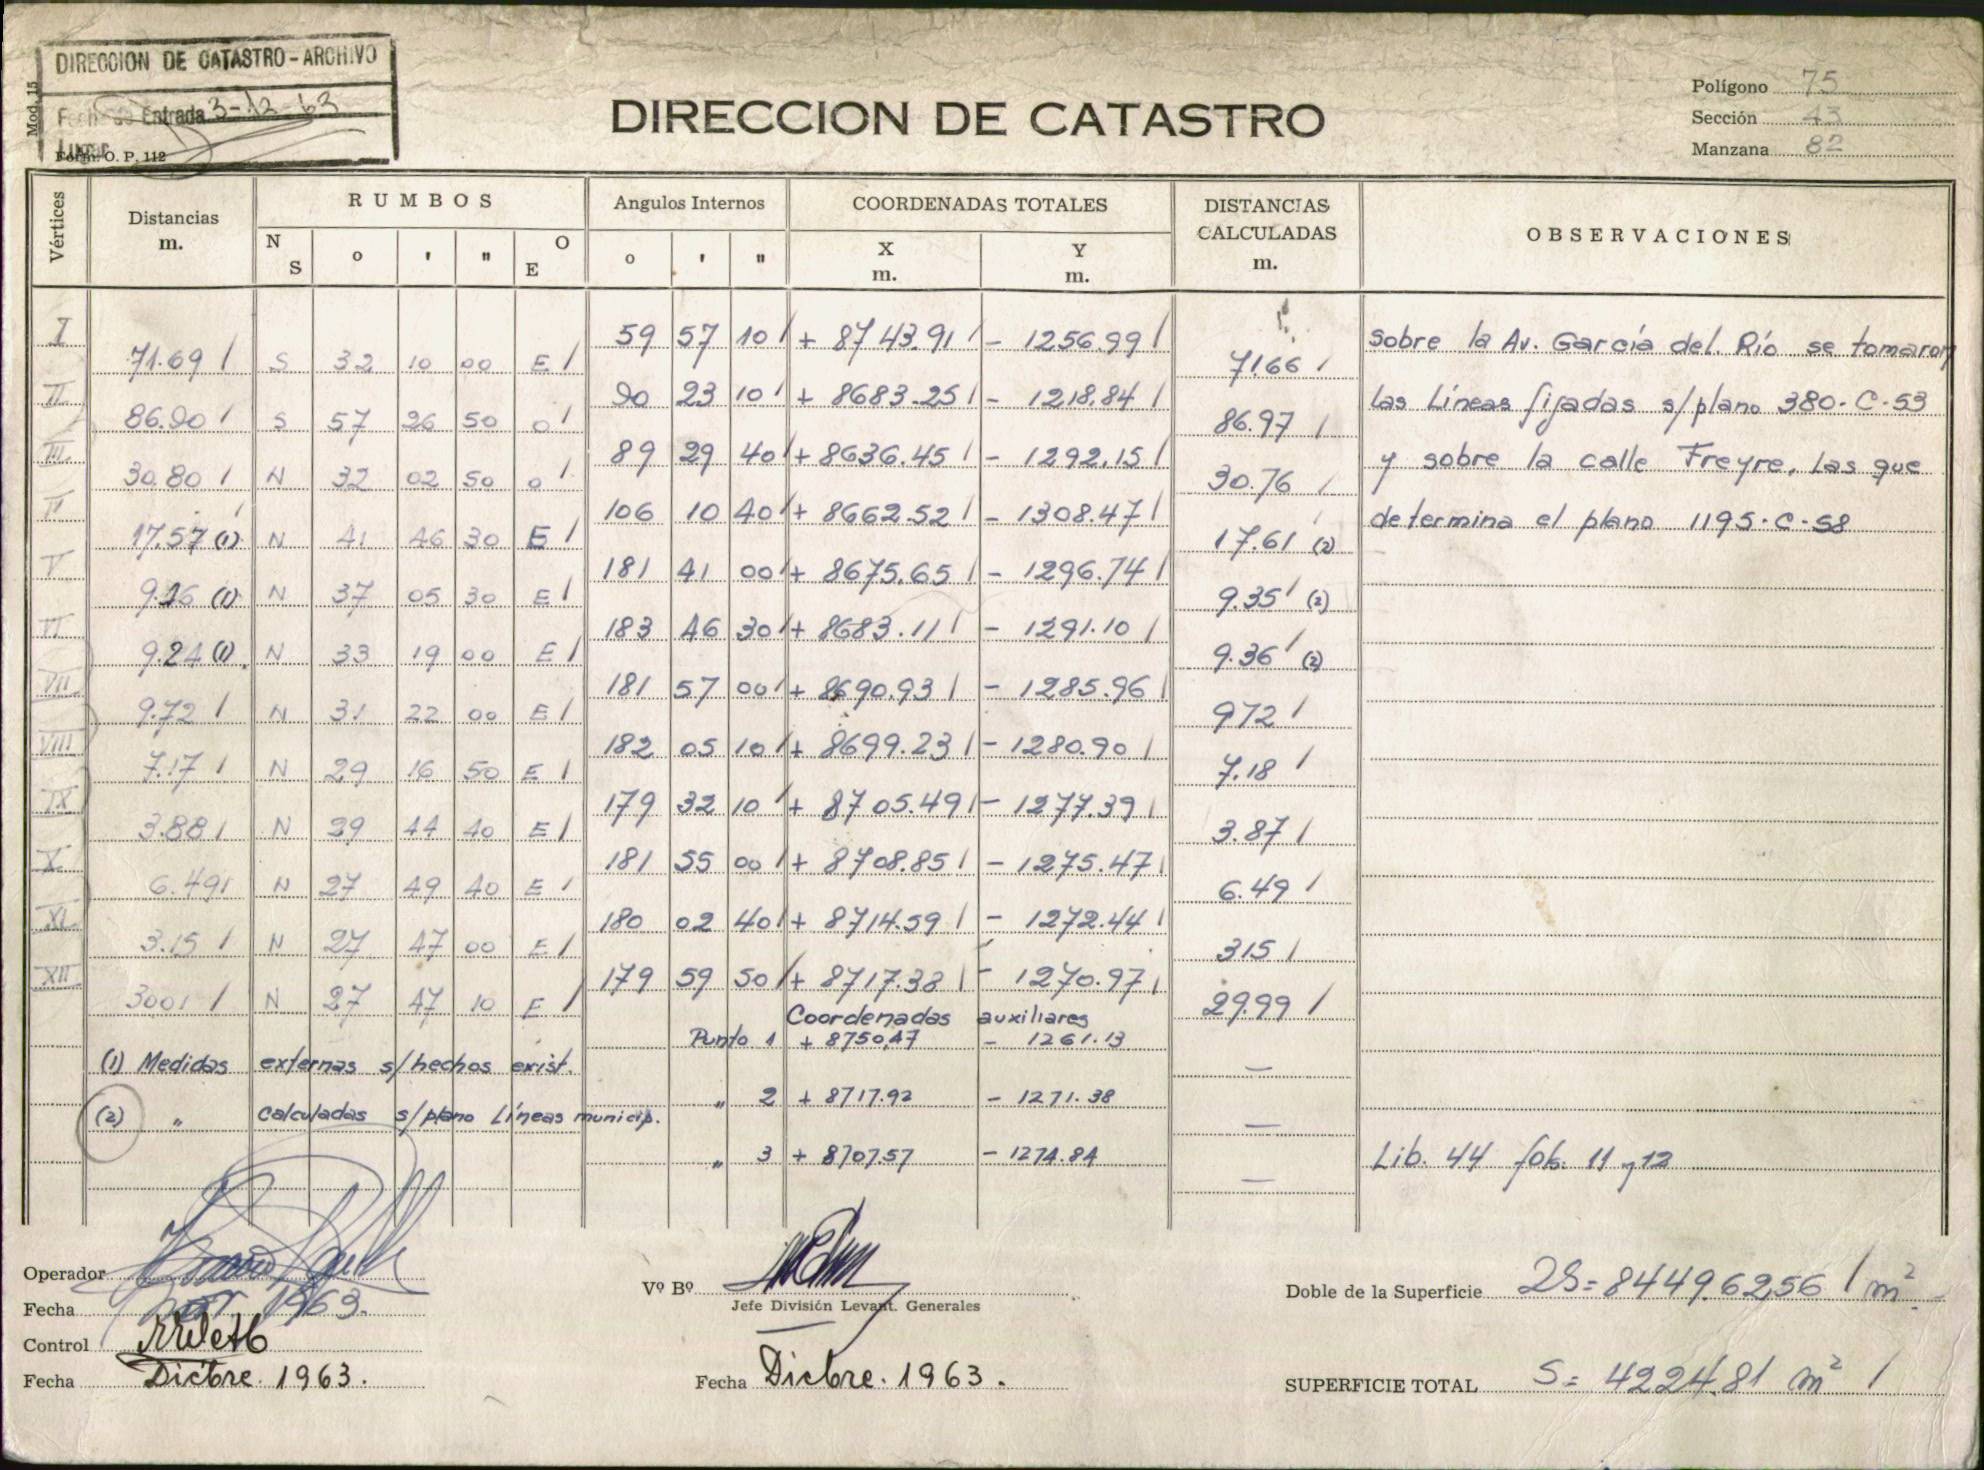 DIRECCION DE CATASTRO - ARCHIVO
Mod. 15
Fecha de Entrada 3-12-63
Lugar
Form. O. P. 112
DIRECCION DE CATASTRO
Polígono 75
Sección 43
Manzana 82
Vértices Distancias m. RUMBOS Angulos Internos COORDENADAS TOTALES DISTANCIAS CALCULADAS m. OBSERVACIONES
N S o ' " O E o ' " X m. Y m.
I 59 57 10 / + 8743.91 / - 1256.99 /
71.69 / S 32 10 00 E / 71.66 /
II 90 23 10 / + 8683.25 / - 1218.84 /
86.90 / S 57 26 50 O / 86.97 /
III 89 29 40 / + 8636.45 / - 1292.15 /
30.80 / N 32 02 50 O / 30.76 /
IV 106 10 40 / + 8662.52 / - 1308.47 /
17.57 (1) N 41 46 30 E / 17.61 (2)
V 181 41 00 / + 8675.65 / - 1296.74 /
9.26 (1) N 37 05 30 E / 9.35 / (2)
VI 183 46 30 / + 8683.11 / - 1291.10 /
9.24 (1) N 33 19 00 E / 9.36 / (2)
VII 181 57 00 / + 8690.93 / - 1285.96 /
9.72 / N 31 22 00 E / 972 /
VIII 182 05 10 / + 8699.23 / - 1280.90 /
7.17 / N 29 16 50 E / 7.18 /
IX 179 32 10 / + 8705.49 / - 1277.39 /
3.88 / N 29 44 40 E / 3.87 /
X 181 55 00 / + 8708.85 / - 1275.47 /
6.49 / N 27 49 40 E / 6.49 /
XI 180 02 40 / + 8714.59 / - 1272.44 /
3.15 / N 27 47 00 E / 315 /
XII 179 59 50 / + 8717.38 / - 1270.97 /
3001 / N 27 47 10 E / 29.99 /
Coordenadas auxiliares
Punto 1 + 8750.47 - 1261.13
(1) Medidas externas s/hechos exist.
" 2 + 8717.92 - 1271.38
(2) " calculadas s/plano Líneas municip.
" 3 + 8707.57 - 1274.84
sobre la Av. García del. Río se tomaron
las Líneas fijadas s/plano 380-C-53
y sobre la calle Freyre, las que
determina el plano 1195-C-58
Lib. 44 fols. 11 y 12
Operador
Fecha 1963.
Control
Fecha Dicbre. 1963.
Vº Bº
Jefe División Levant. Generales
Fecha Dicbre. 1963.
Doble de la Superficie 2S = 8449.6256 / m²
SUPERFICIE TOTAL S = 4224.81 m² /